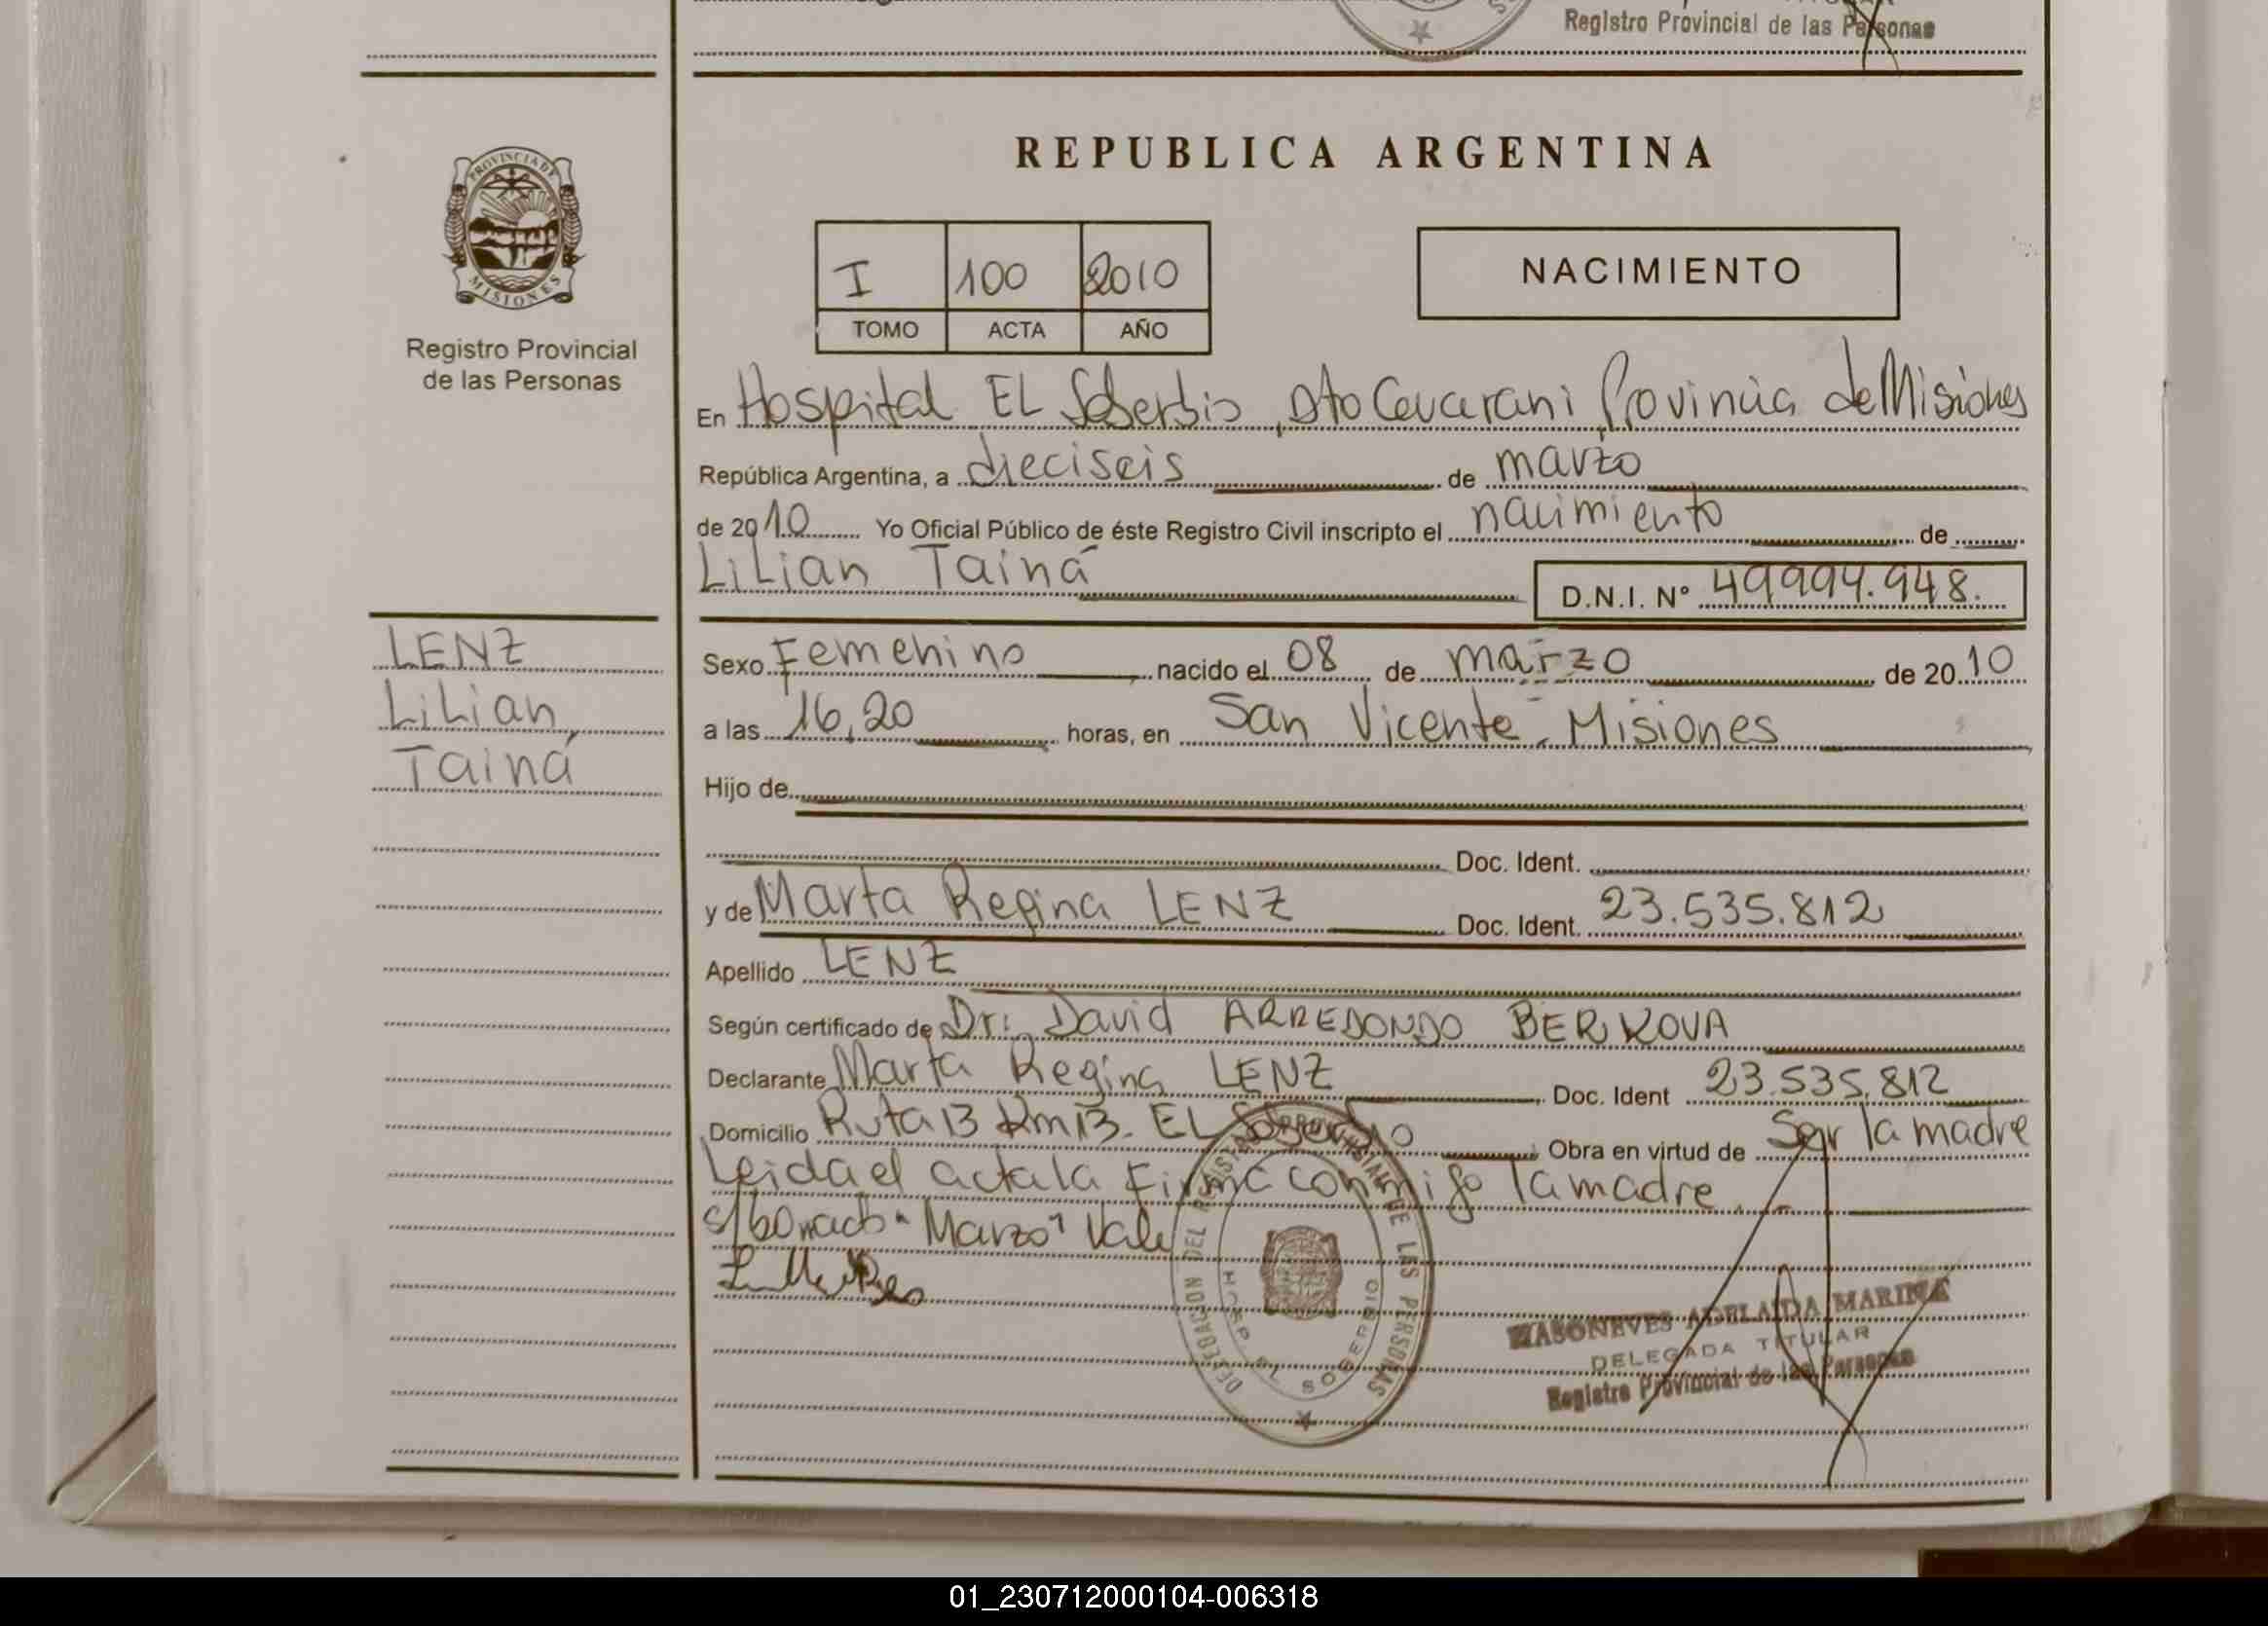 Registro Provincial de las Personas
REPUBLICA ARGENTINA
PROVINCIA DE
MISIONES
Registro Provincial
de las Personas
I 100 2010
TOMO ACTA AÑO
NACIMIENTO
En Hospital EL Soberbio, Dto Guarani, Provincia de Misiones
República Argentina, a dieciseis de marzo
de 2010 Yo Oficial Público de éste Registro Civil inscripto el nacimiento de
LiLian Tainá
D.N.I. Nº 49994.948.
LENZ
LiLian
Tainá
Sexo Femenino nacido el 08 de marzo de 2010
a las 16,20 horas, en San Vicente - Misiones
Hijo de
Doc. Ident.
y de Marta Regina LENZ Doc. Ident. 23.535.812
Apellido LENZ
Según certificado de Dr: David ARREDONDO BERKOVA
Declarante Marta Regina LENZ Doc. Ident 23.535.812
Domicilio Ruta 13 Km 13. EL Soberbio Obra en virtud de Ser la madre
Leida el acta la Firma conmigo la madre.
s/borrado "Marzo" Vale
DELEGACION DEL REGISTRO PROVINCIAL DE LAS PERSONAS
HOSP. EL SOBERBIO
MASONEVES ADELAIDA MARINA
DELEGADA TITULAR
Registro Provincial de las Personas
01_230712000104-006318